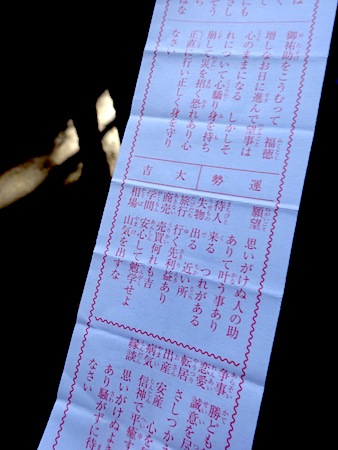 御祐助をこうむって 福徳
増しなお日に進んで望事は
心のままになる しかしそ
れについて心驕り身を持ち
崩して災を招く恐れあり心
正直に行い正しく身を守り
なさい
運勢
大吉
願望 思いがけぬ人の助
あり 叶う事あり
待人 来る つれがある
失物 出る 近い所
旅行 行く先利益あり
商売 売買何れも吉
学問 安心して勉学せよ
相場 山気を出すな
争事 勝ども
恋愛 誠意を
転居 さしつか
出産 安産 心を
病気 信神で平癒
縁談 思いがけぬよき
あり騒がずに待
なさい